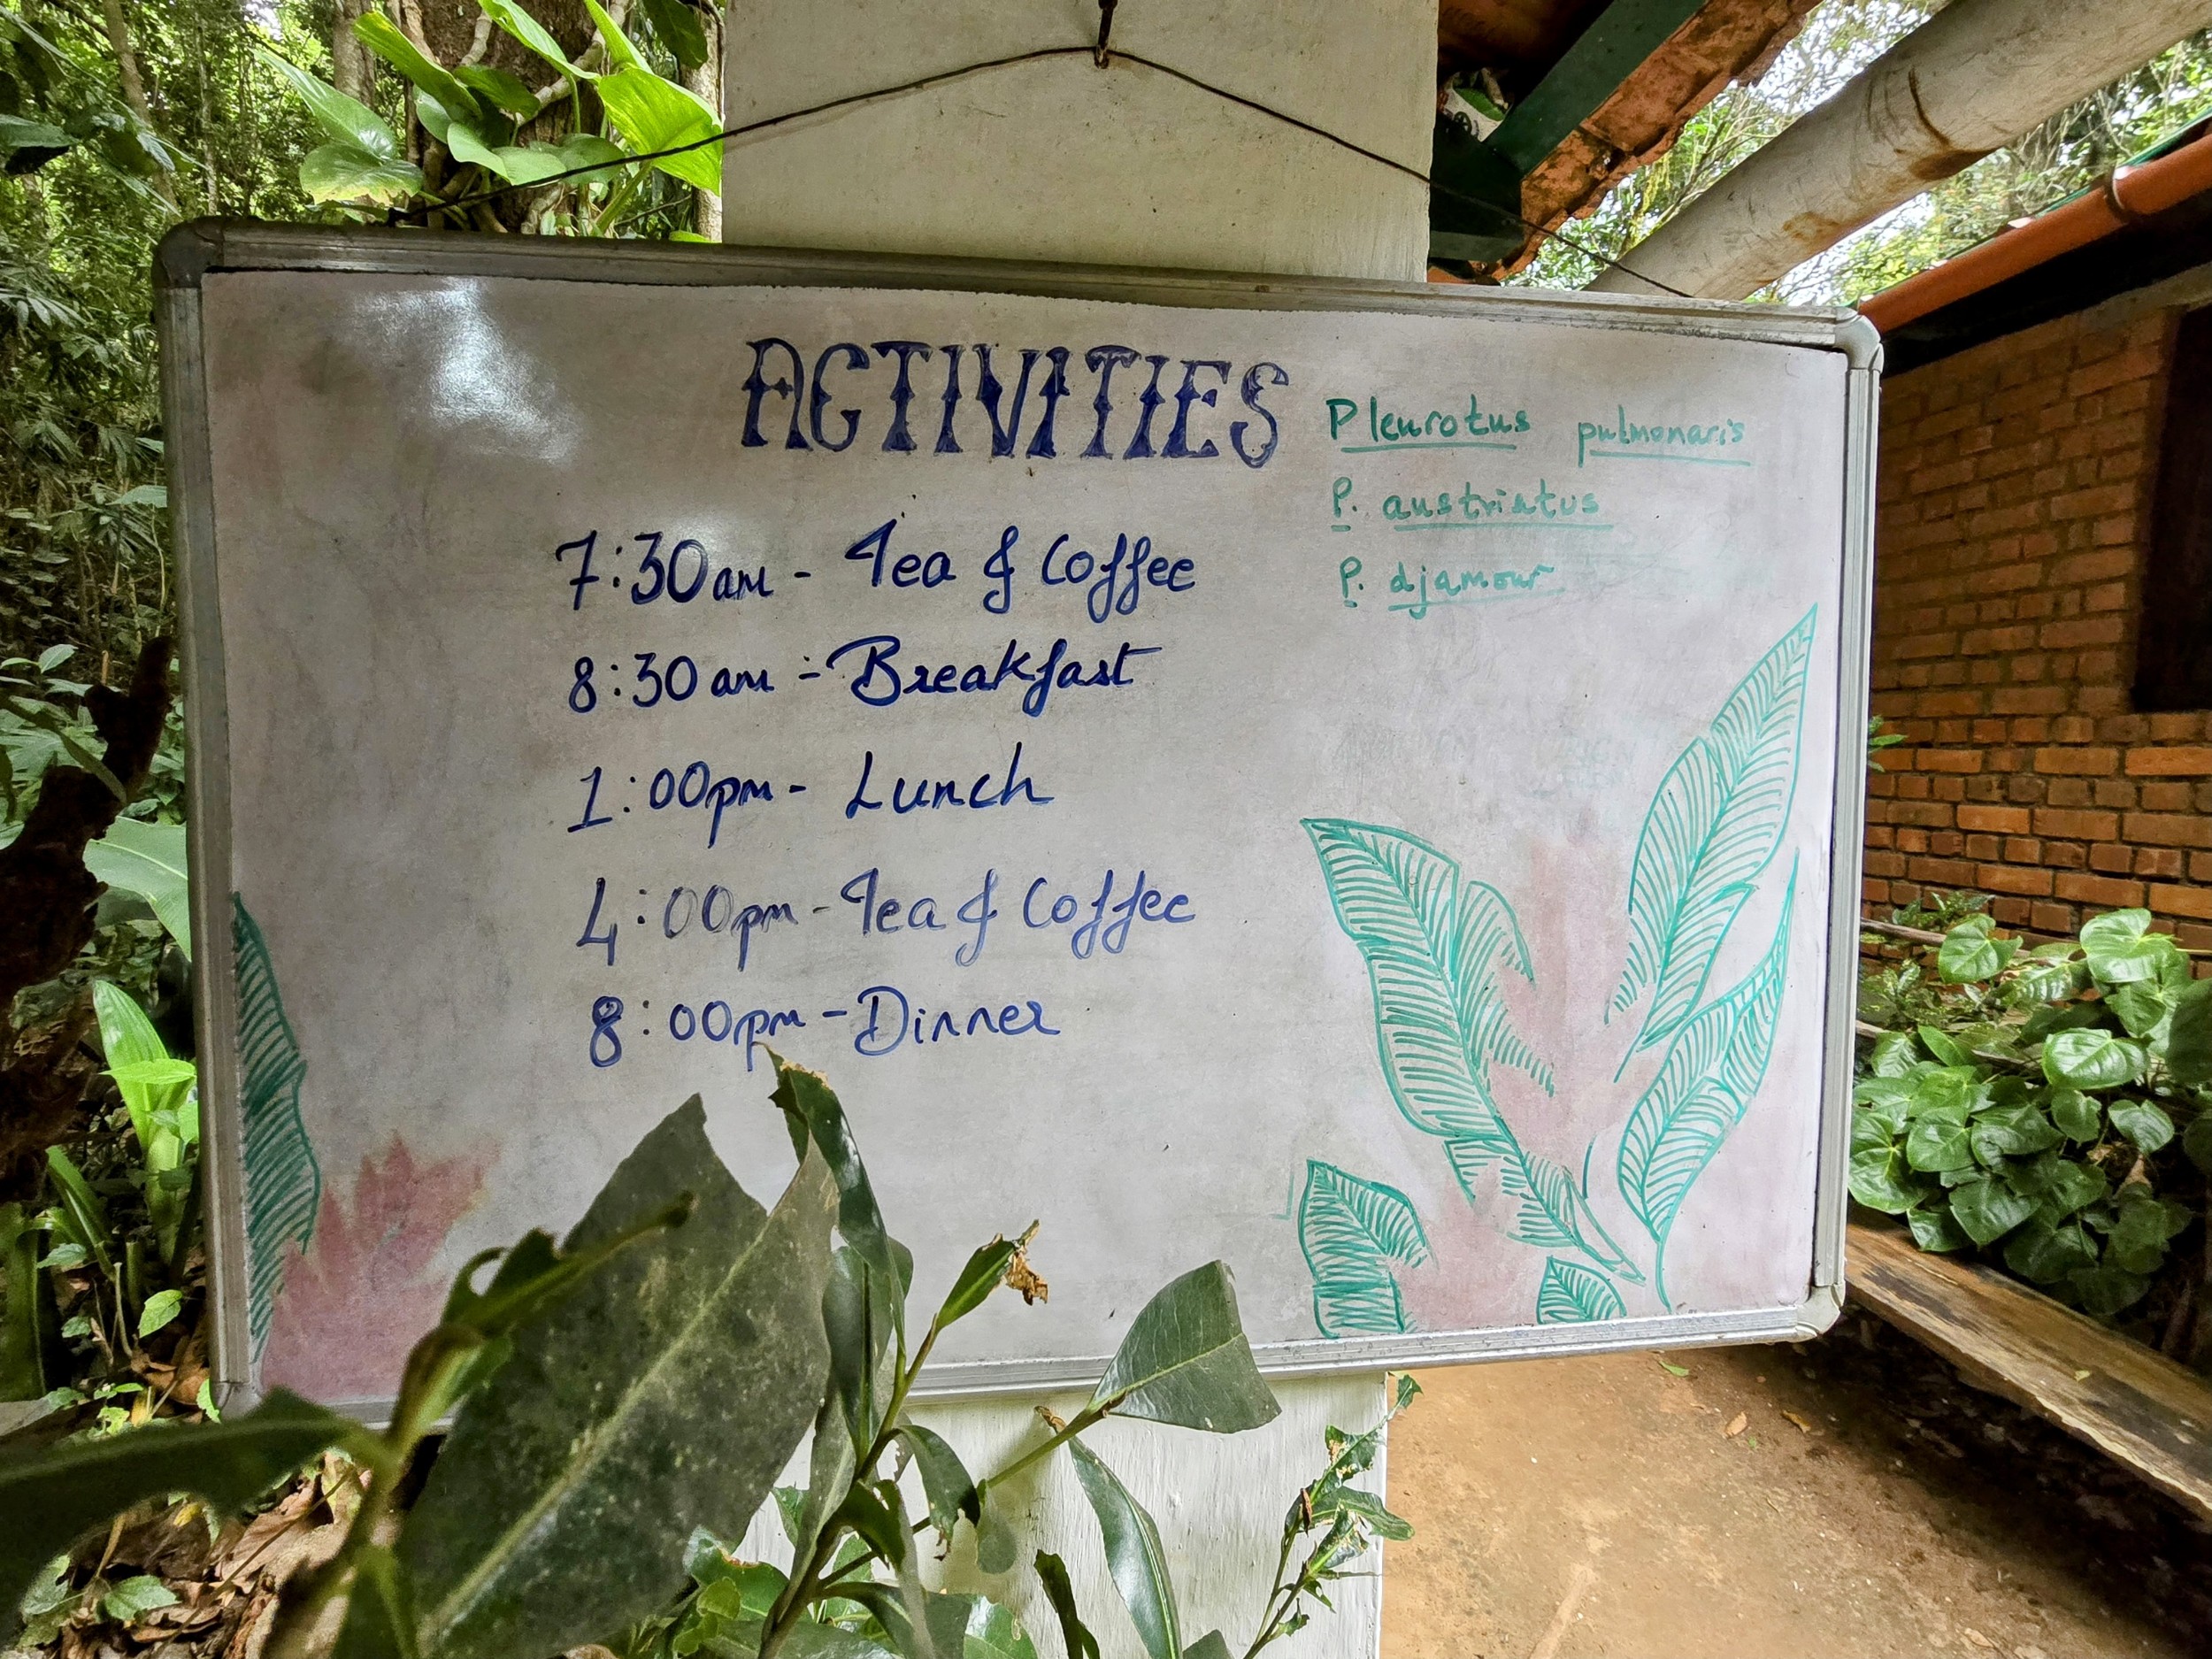 ACTIVITIES
Pleurotus pulmonaris
P. austriatus
P. djamour
7:30am - Tea & Coffee
8:30am - Breakfast
1:00pm - Lunch
4:00pm - Tea & Coffee
8:00pm - Dinner